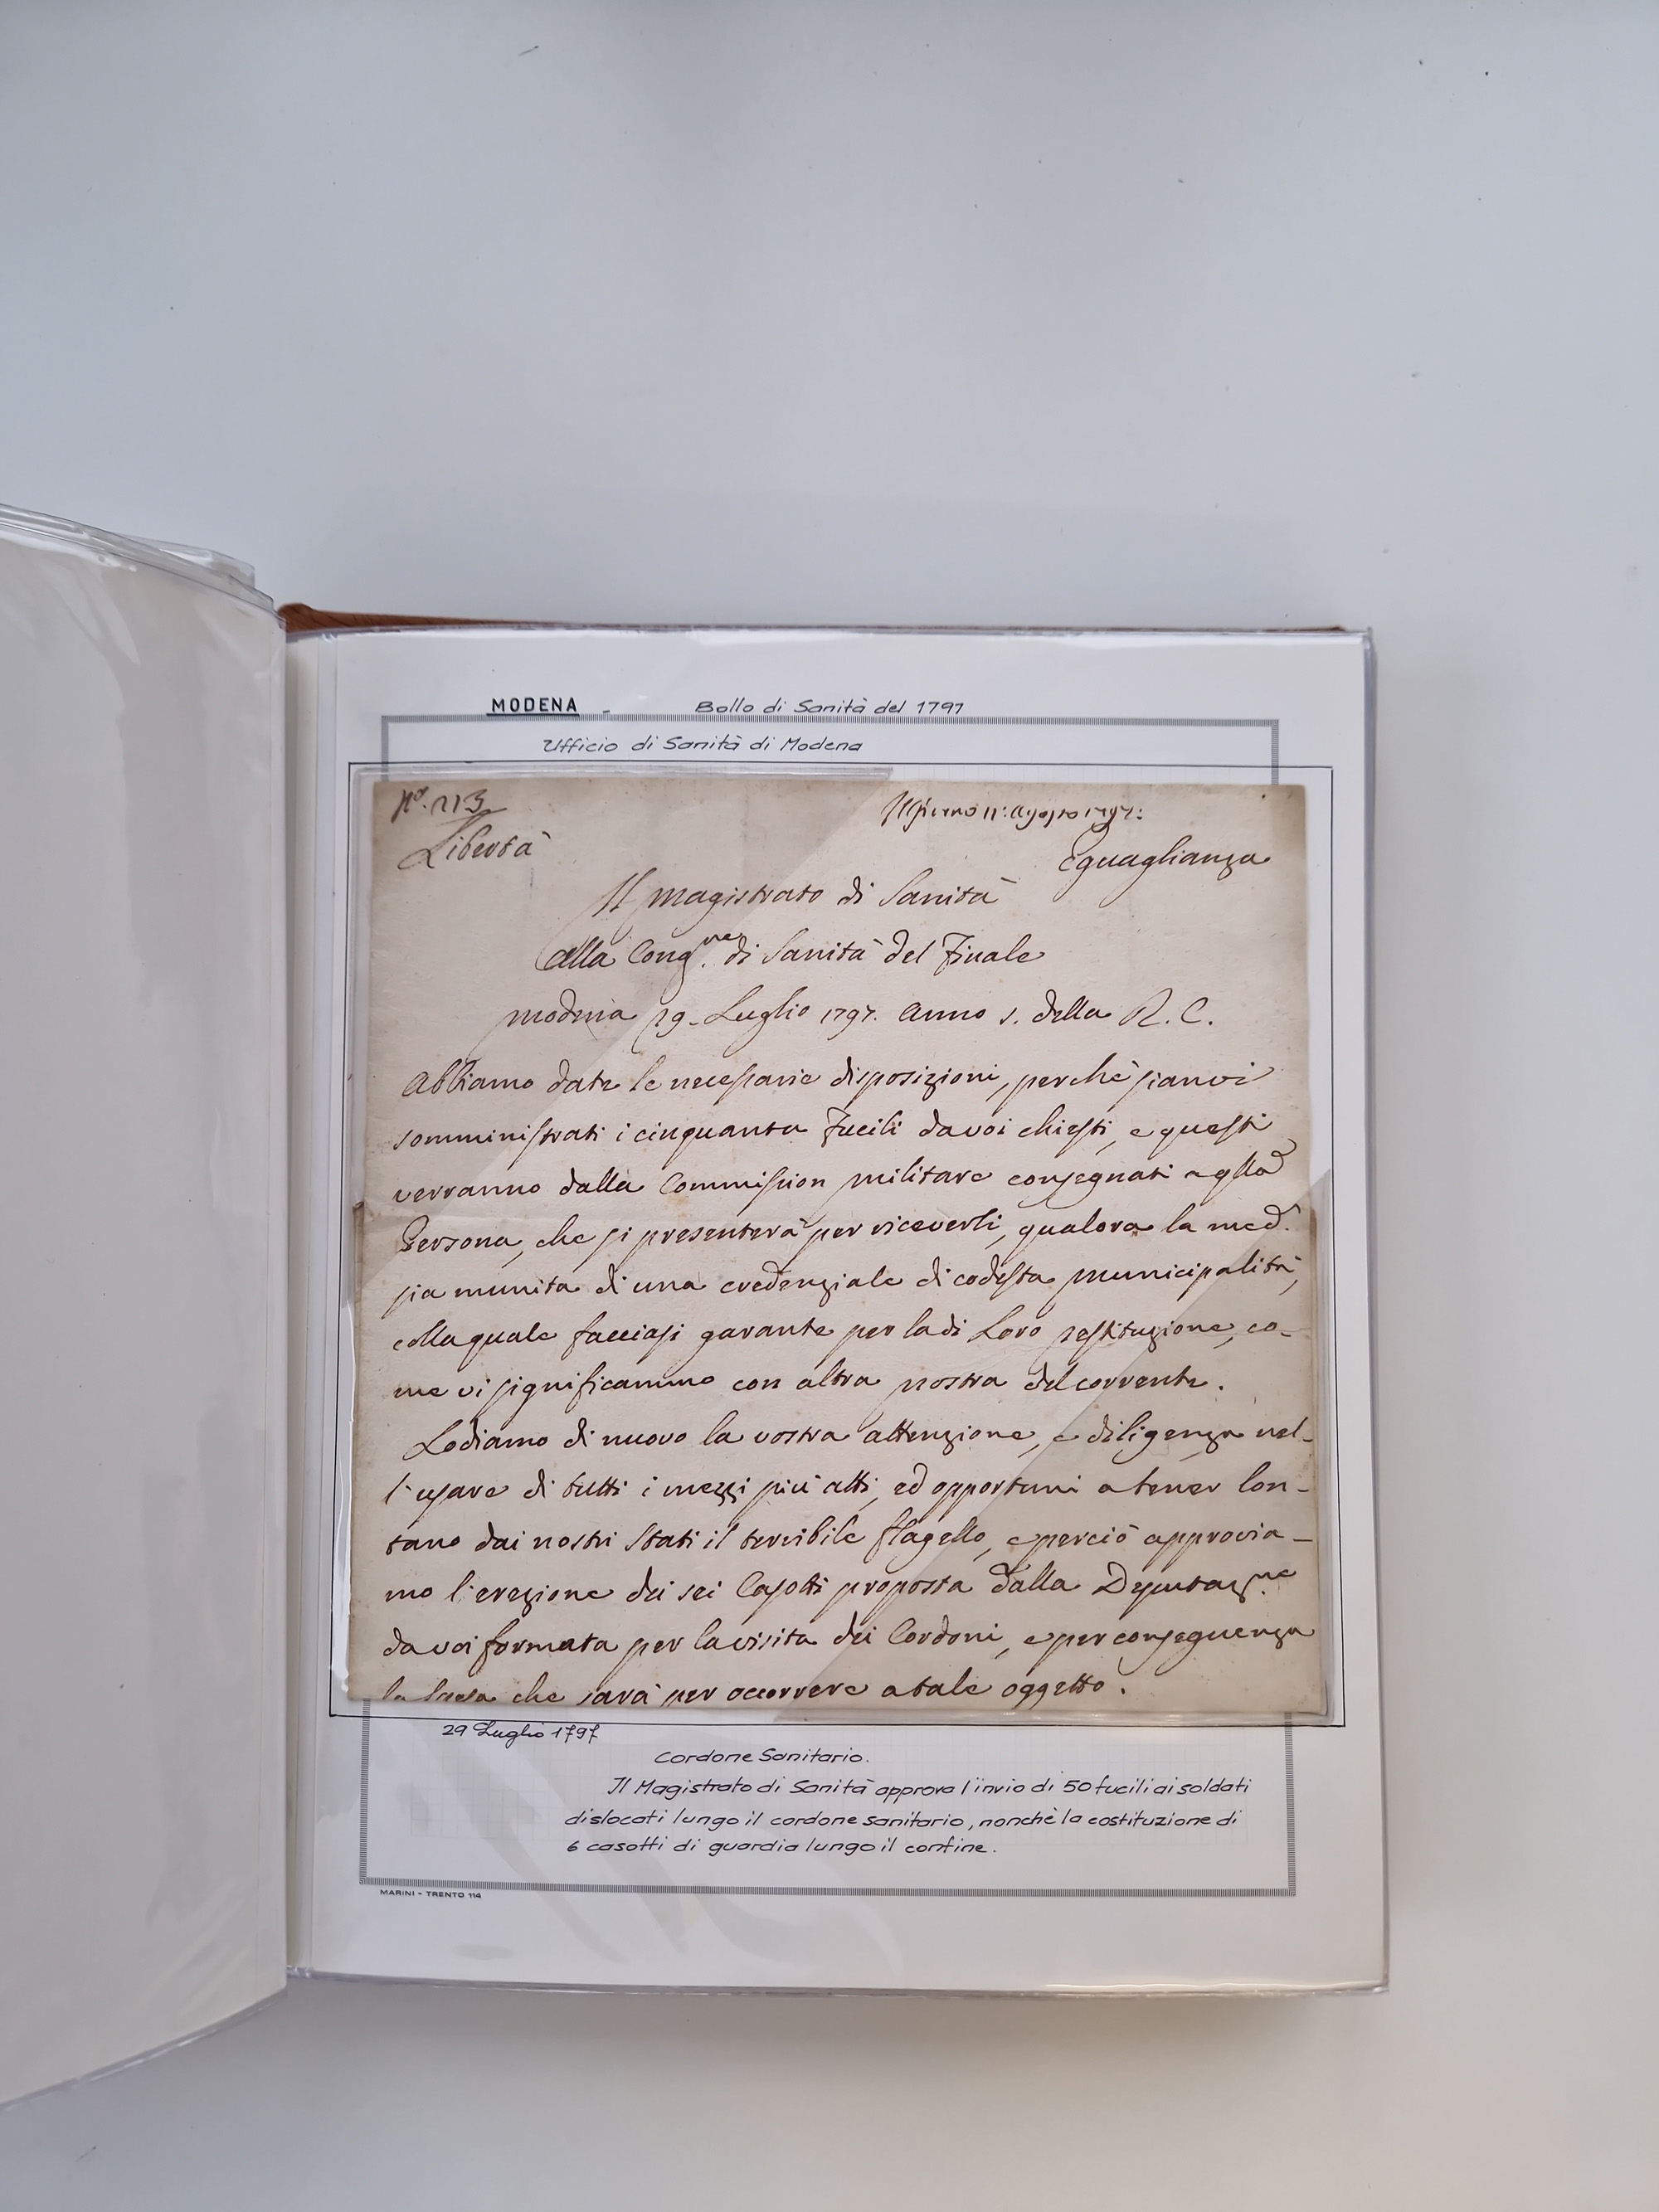 MODENA - Bollo di Sanità del 1797
Ufficio di Sanità di Modena
N.º 213
Il giorno 11: Agosto 1797:
Libertà
Eguaglianza
Il Magistrato di Sanità
Alla Cong.ne di Sanità del Finale
Modena 29. Luglio 1797. Anno 1. della R. C.
Abbiamo date le necessarie disposizioni, perchè sianvi
somministrati i cinquanta Fucili da voi chiesti, e questi
verranno dalla Commission Militare consegnati a qlla
Persona, che si presenterà per riceverli, qualora la med.
sia munita di una credenziale di codesta Municipalità,
colla quale facciasi garante per la di Loro restituzione, co-
me vi significammo con altra nostra del corrente.
Lodiamo di nuovo la vostra attenzione, e diligenza nel-
l'usare di tutti i mezzi più atti, ed opportuni a tener lon-
tano dai nostri Stati il terribile flagello, e perciò approvia-
mo l'erezione dei sei Casotti proposta dalla Deputaz.ne
da voi formata per la visita dei Cordoni, e per conseguenza
la che sarà per occorrere a tale oggetto.
29 Luglio 1797
Cordone Sanitario.
Il Magistrato di Sanità approva l'invio di 50 fucili ai soldati
dislocati lungo il cordone sanitario, nonchè la costituzione di
6 casotti di guardia lungo il confine.
MARINI - TRENTO 114